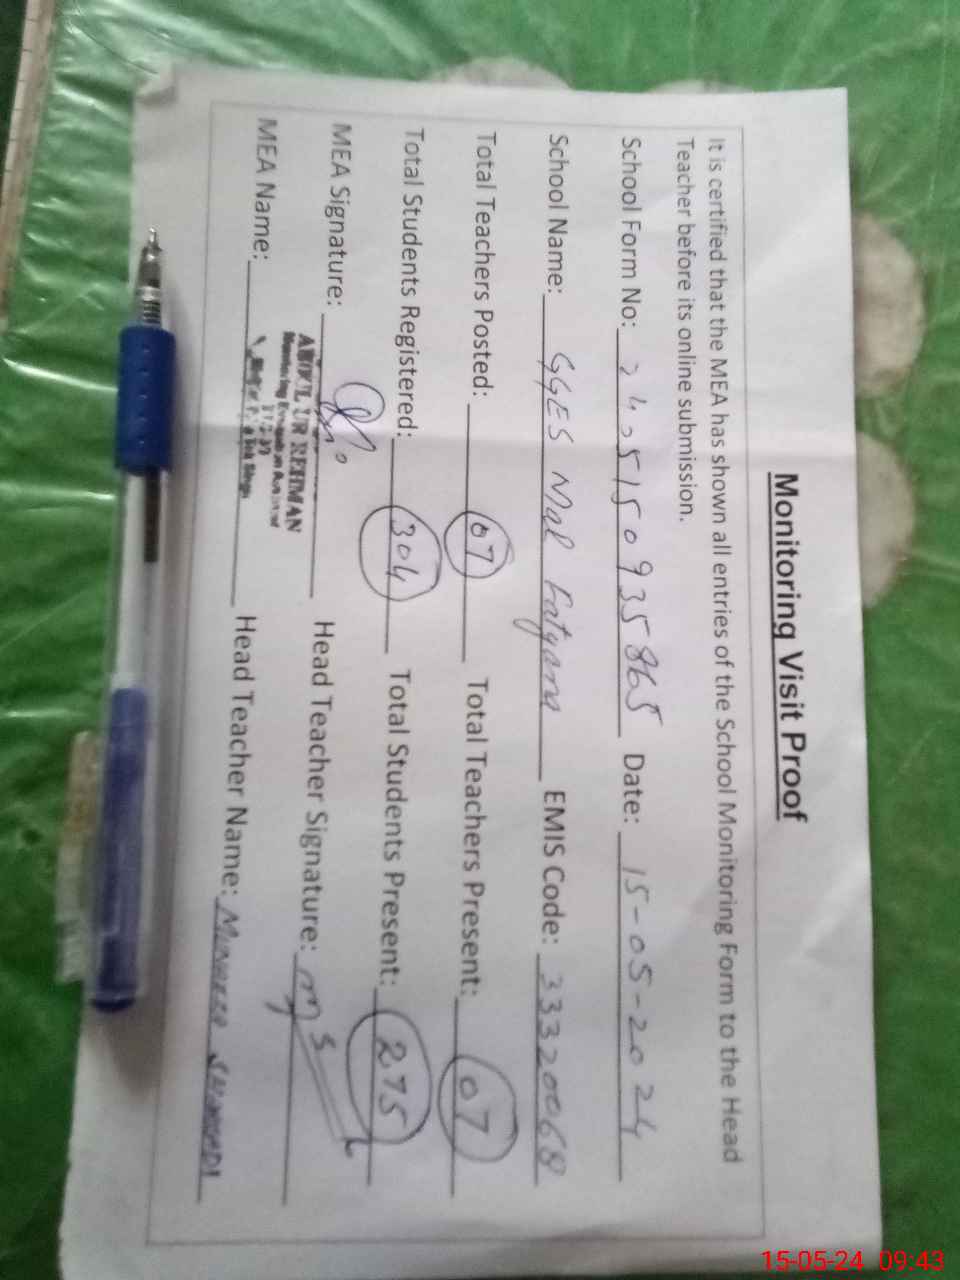 Monitoring Visit Proof
It is certified that the MEA has shown all entries of the School Monitoring Form to the Head
Teacher before its online submission.
School Form No: 2405150935865 Date: 15-05-2024
School Name: GGES Mal Fatyana EMIS Code: 33320068
Total Teachers Posted: 07 Total Teachers Present: 07
Total Students Registered: 304 Total Students Present: 275
MEA Signature: Head Teacher Signature:
UR REHMAN
MEA Name: Head Teacher Name:
15-05-24 09:43